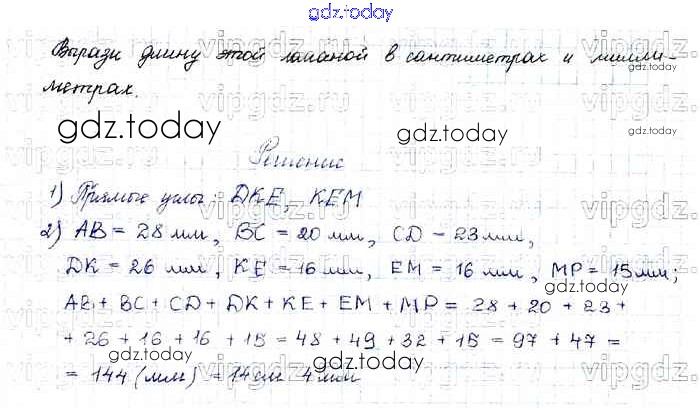 gdz.today
Вырази длину этой ломаной в сантиметрах и милли-
метрах.
gdz.today
gdz.today
Решение
1) Прямые углы: DKE, KEM
2) AB = 28 мм, BC = 20 мм, CD - 23 мм,
DK = 26 мм, KE = 16 мм, EM = 16 мм, MP = 15 мм;
AB + BC + CD + DK + KE + EM + MP = 28 + 20 + 23 +
+ 26 + 16 + 16 + 15 = 48 + 49 + 32 + 15 = 97 + 47 =
gdz.today
gdz.today
= 144 (мм) = 14 см 4 мм